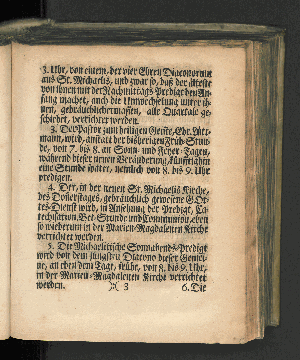 3. Uhr, von einem, der vier Ehren Diaconorum
aus St. Michaelis, und zwar so, daß der älteste
von ihnen mit der Nachmittags Predigt den An-
fang machet, auch die Umwechselung unter ih-
nen, gebräuchlichermassen, alle Quartale ge-
schiehet, verrichtet werden.
3. Der Pastor zum heiligen Geiste, Ehr.
mann, wird, anstatt der bisherigen Früh-Stun-
de, von 7. bis 8. an Sonn- und Feyer-Tagen,
während dieser neuen Veränderung, künfftighin
eine Stunde später, nemlich von 8. bis 9. Uhr
predigen.
4. Der, in der neuen St. Michaelis Kirche,
des Donnerstages, gebräuchlich gewesene GOt-
tes-Dienst wird, in Ansehung der Predigt, Ca-
techisation, Bet-Stunde und Communion, eben
so wiederum in der Marien-Magdalenen Kirche
verrichtet werden.
5. Die Michaelitische Sonnabends-Predigt
wird von dem jüngsten Diacono dieser Gemei-
ne, an eben dem Tage, frühe, von 8. bis 9. Uhr,
in der Marien-Magdalenen Kirche verrichtet
werden.
)( 3 6. Die